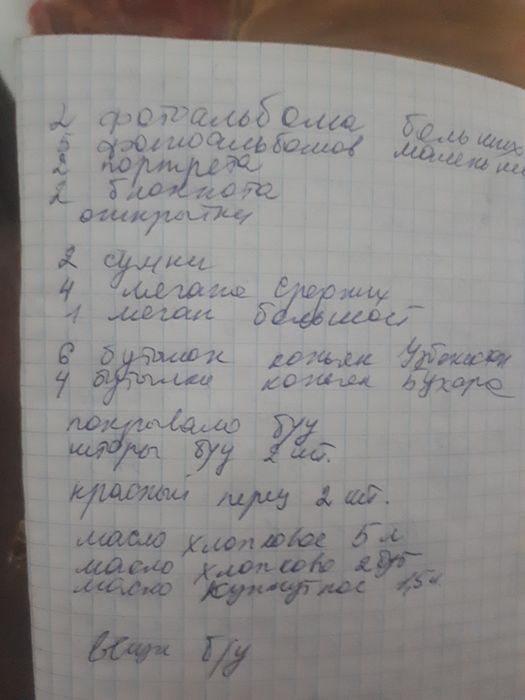 2 фотоальбома больших
5 фотоальбомов маленьких
2 портрета
2 блокнота
открытки
2 сумки
4 мегана средних
1 меган большой
6 бутылок коньяк Узбекистан
4 бутылки коньяк Бухара
покрывало б/у
шторы б/у 2 шт.
красный перец 2 шт.
масло хлопковое 5 л
масло хлопково 2 бут
масло кунжутное 1,5 л
вещи б/у